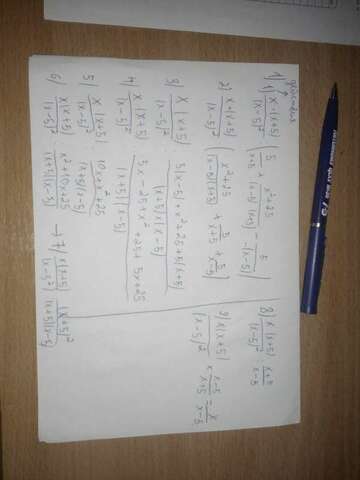 действия
1) 1) x·(x+5)/(x-5)² (5/(x+5) + (x²+25)/((x-5)(x+5)) - 5/(-(x-5)))
2) x·(x+5)/(x-5)² ((x²+25)/((x-5)(x+5)) + 5/(x+5) + 5/(x-5))
3) x(x+5)/(x-5)² (5(x-5)+x²+25+5(x+5))/((x+5)(x-5))
4) x(x+5)/(x-5)² (5x-25+x²+25+5x+25)/((x+5)(x-5))
5) x(x+5)/(x-5)² (10x+x²+25)/((x+5)(x-5))
6) x(x+5)/(x-5)² (x²+10x+25)/((x+5)(x-5)) → 7) x(x+5)/(x-5)² (x+5)²/((x+5)(x-5))
8) x(x+5)/(x-5)² : (x+5)/(x-5)
9) x(x+5)/(x-5)² × (x-5)/(x+5) = x/(x-5)